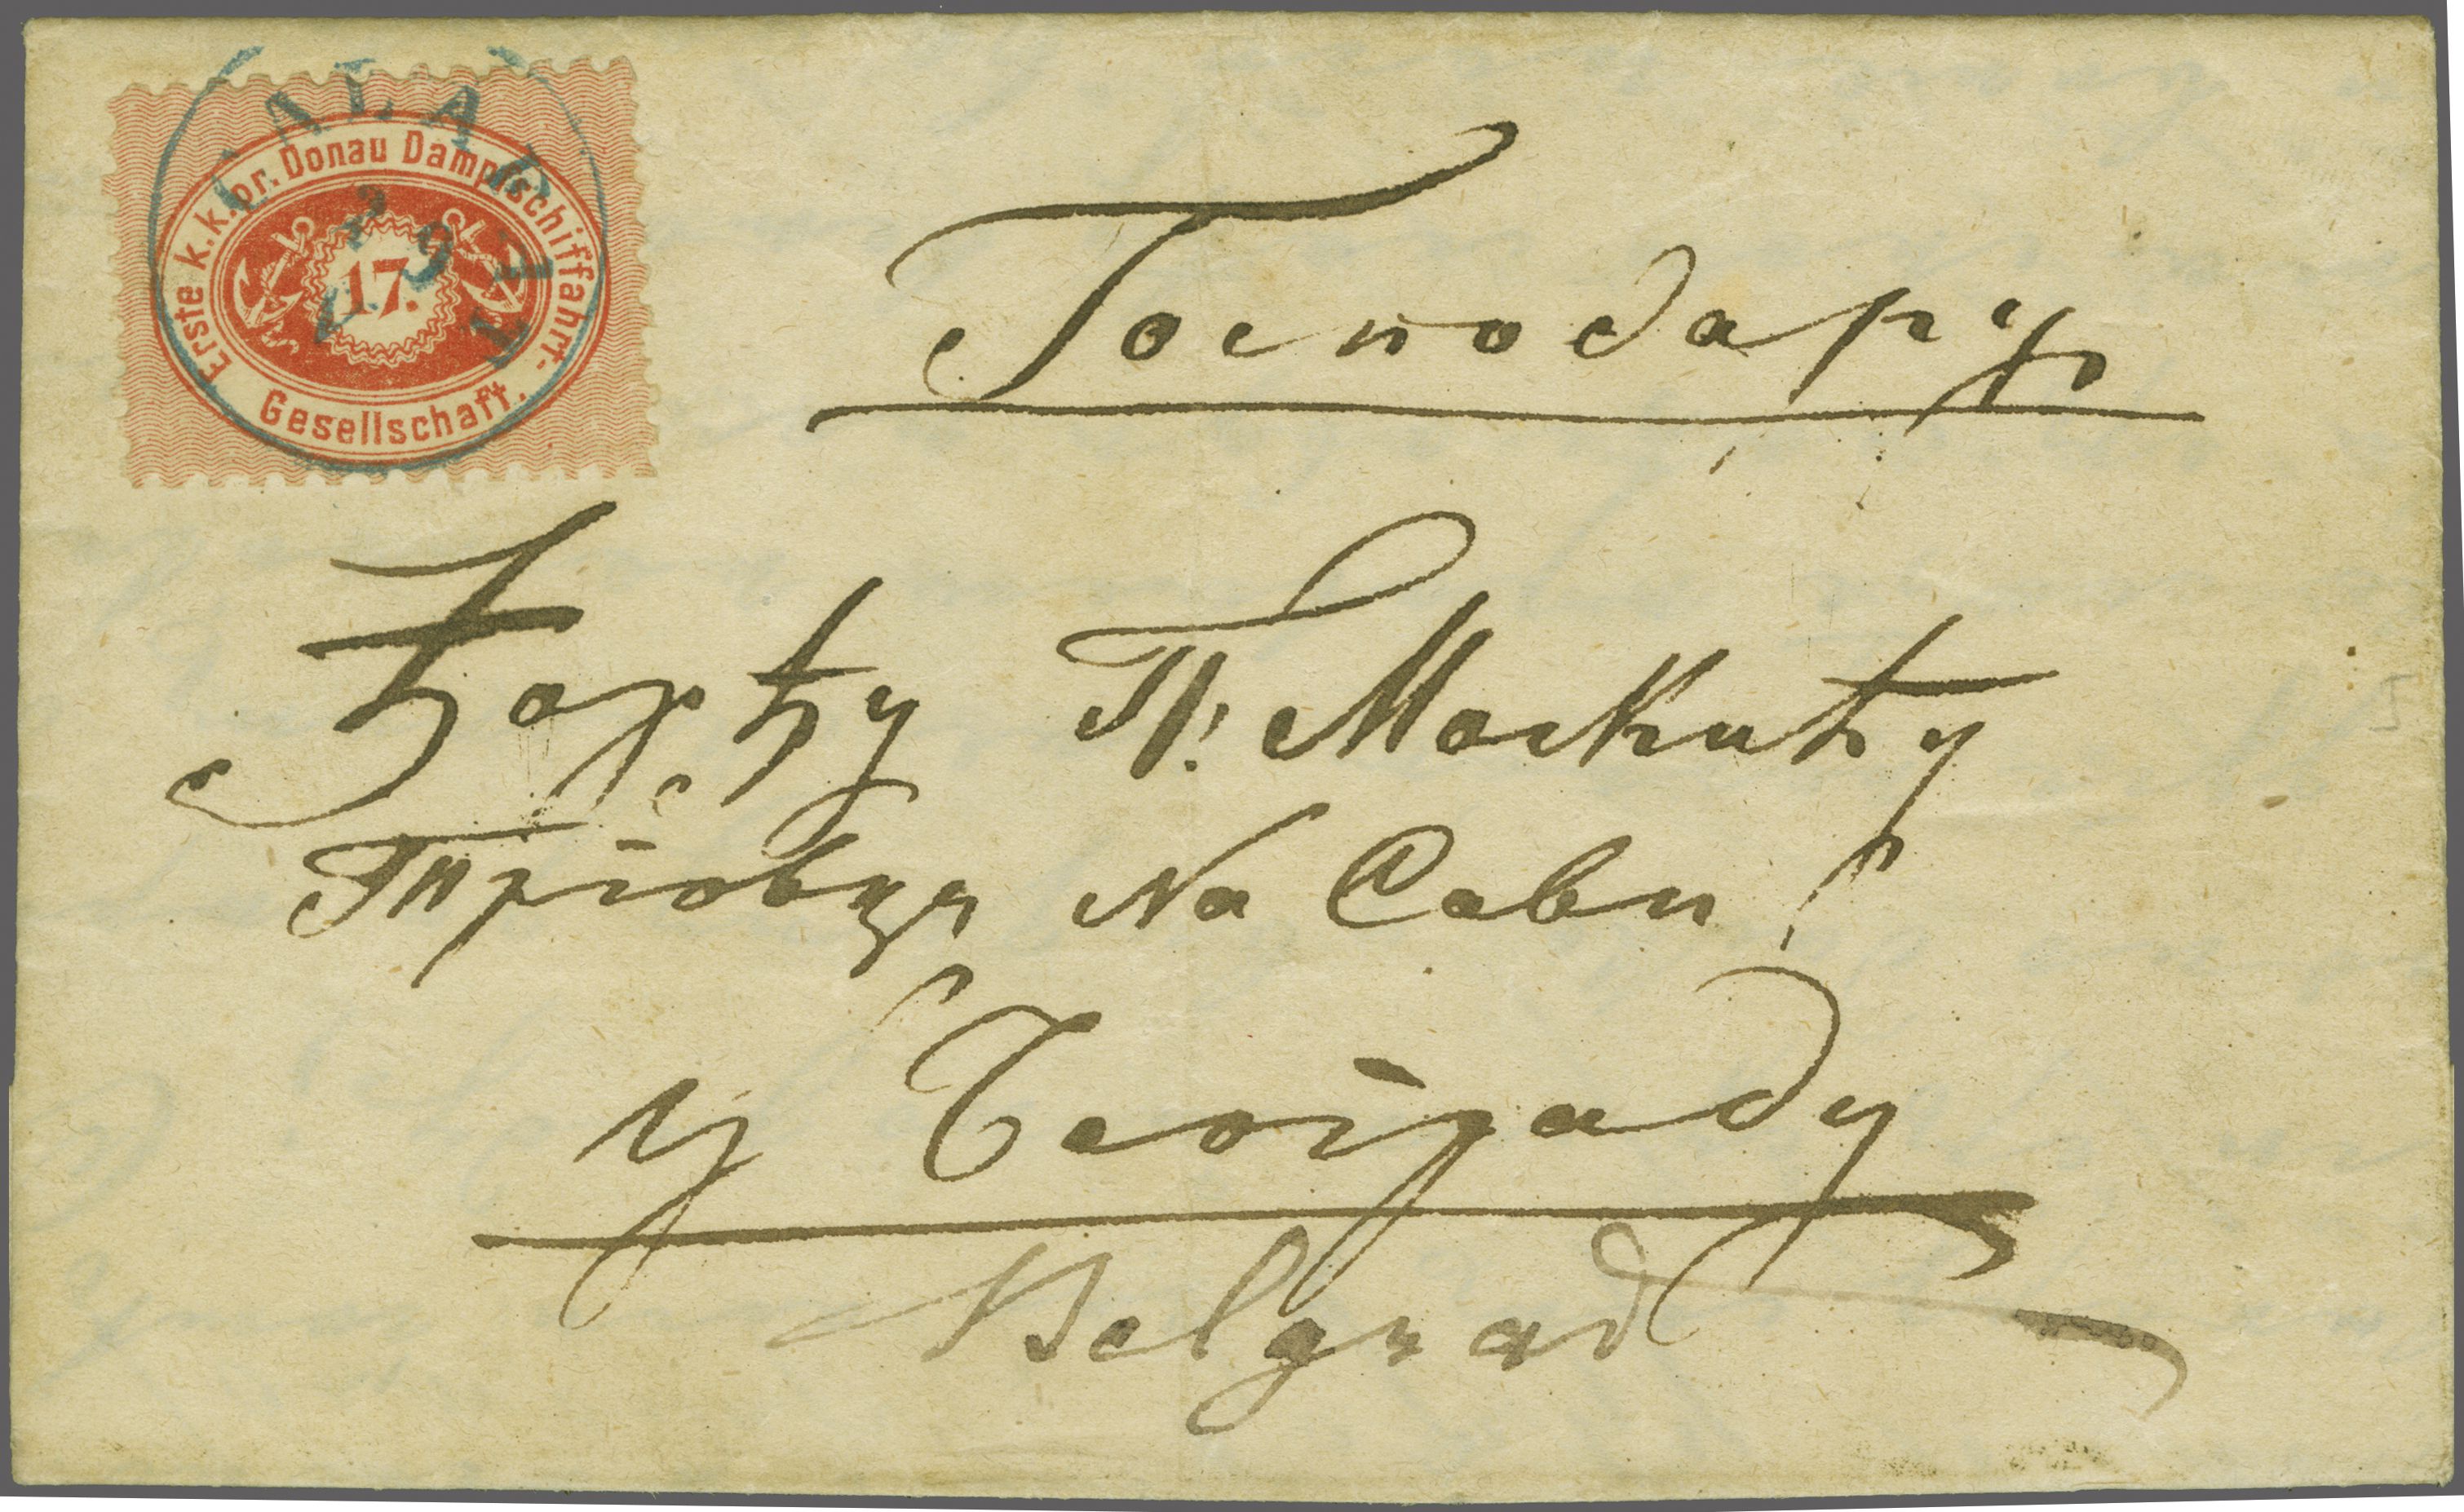 Erste k. k. pr. Donau Dampfschiffahrt-
Gesellschaft.
17.
Господару
Ђорђу П. Москићу
Трговцу на Сави
у Београду
Belgrad